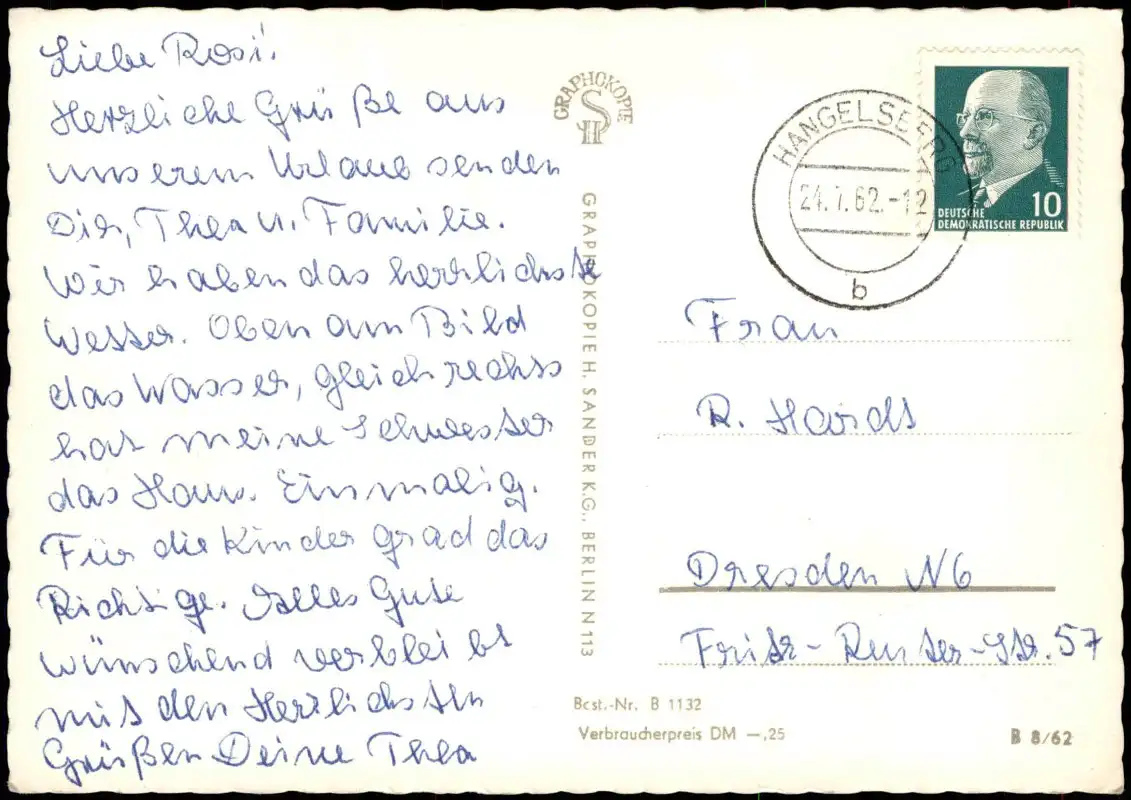 Liebe Rosi!
Herzliche Grüße aus
unserem Urlaub senden
Dir, Thea u. Familie.
Wir haben das herrlichste
Wetter. Oben am Bild
das Wasser, gleich rechts
hat meine Schwester
das Haus. Einmalig.
Für die Kinder grad das
Richtige. Alles Gute
wünschend verbleibt
mit den Herzlichsten
Grüßen Deine Thea
GRAPHOKOPIE
SH
GRAPHOKOPIE H. SANDER K.G., BERLIN N 113
HANGELSBERG
24.7.62.-12
b
10
DEUTSCHE
DEMOKRATISCHE REPUBLIK
Frau
R. Hardt
Dresden N6
Fritz-Reuter-Str. 57
Bcst.-Nr. B 1132
Verbraucherpreis DM —,25
B 8/62